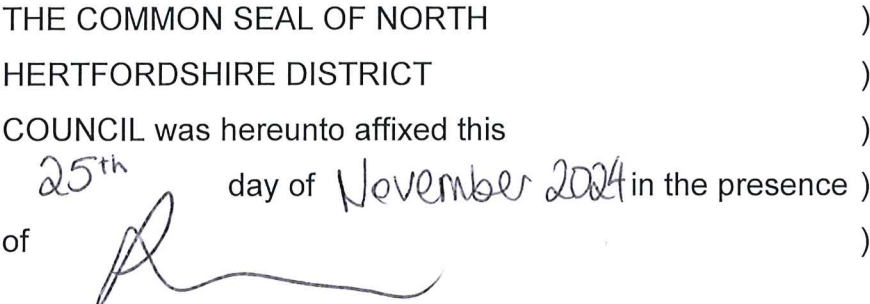 THE COMMON SEAL OF NORTH )
HERTFORDSHIRE DISTRICT )
COUNCIL was hereunto affixed this )
25th day of November 2024 in the presence )
of )